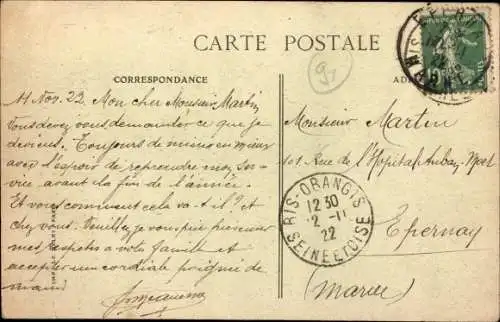 CARTE POSTALE
CORRESPONDANCE
11 Nov. 22. Mon cher Monsieur Martin
Vous devez vous demander ce que je
deviens. Toujours de mieux en mieux
avec l'espoir de reprendre mon ser-
vice avant la fin de l'année.
Et vous comment cela va-t-il? et
chez vous. Veuillez je vous prie présenter
mes respects a votre famille et
accepter un cordiale poignée de
main
Monsieur Martin
101 Rue de l'Hopital Auban-Moët
Epernay
(Marne)
RIS-ORANGIS
12 30
2 -11
22
SEINE ET OISE